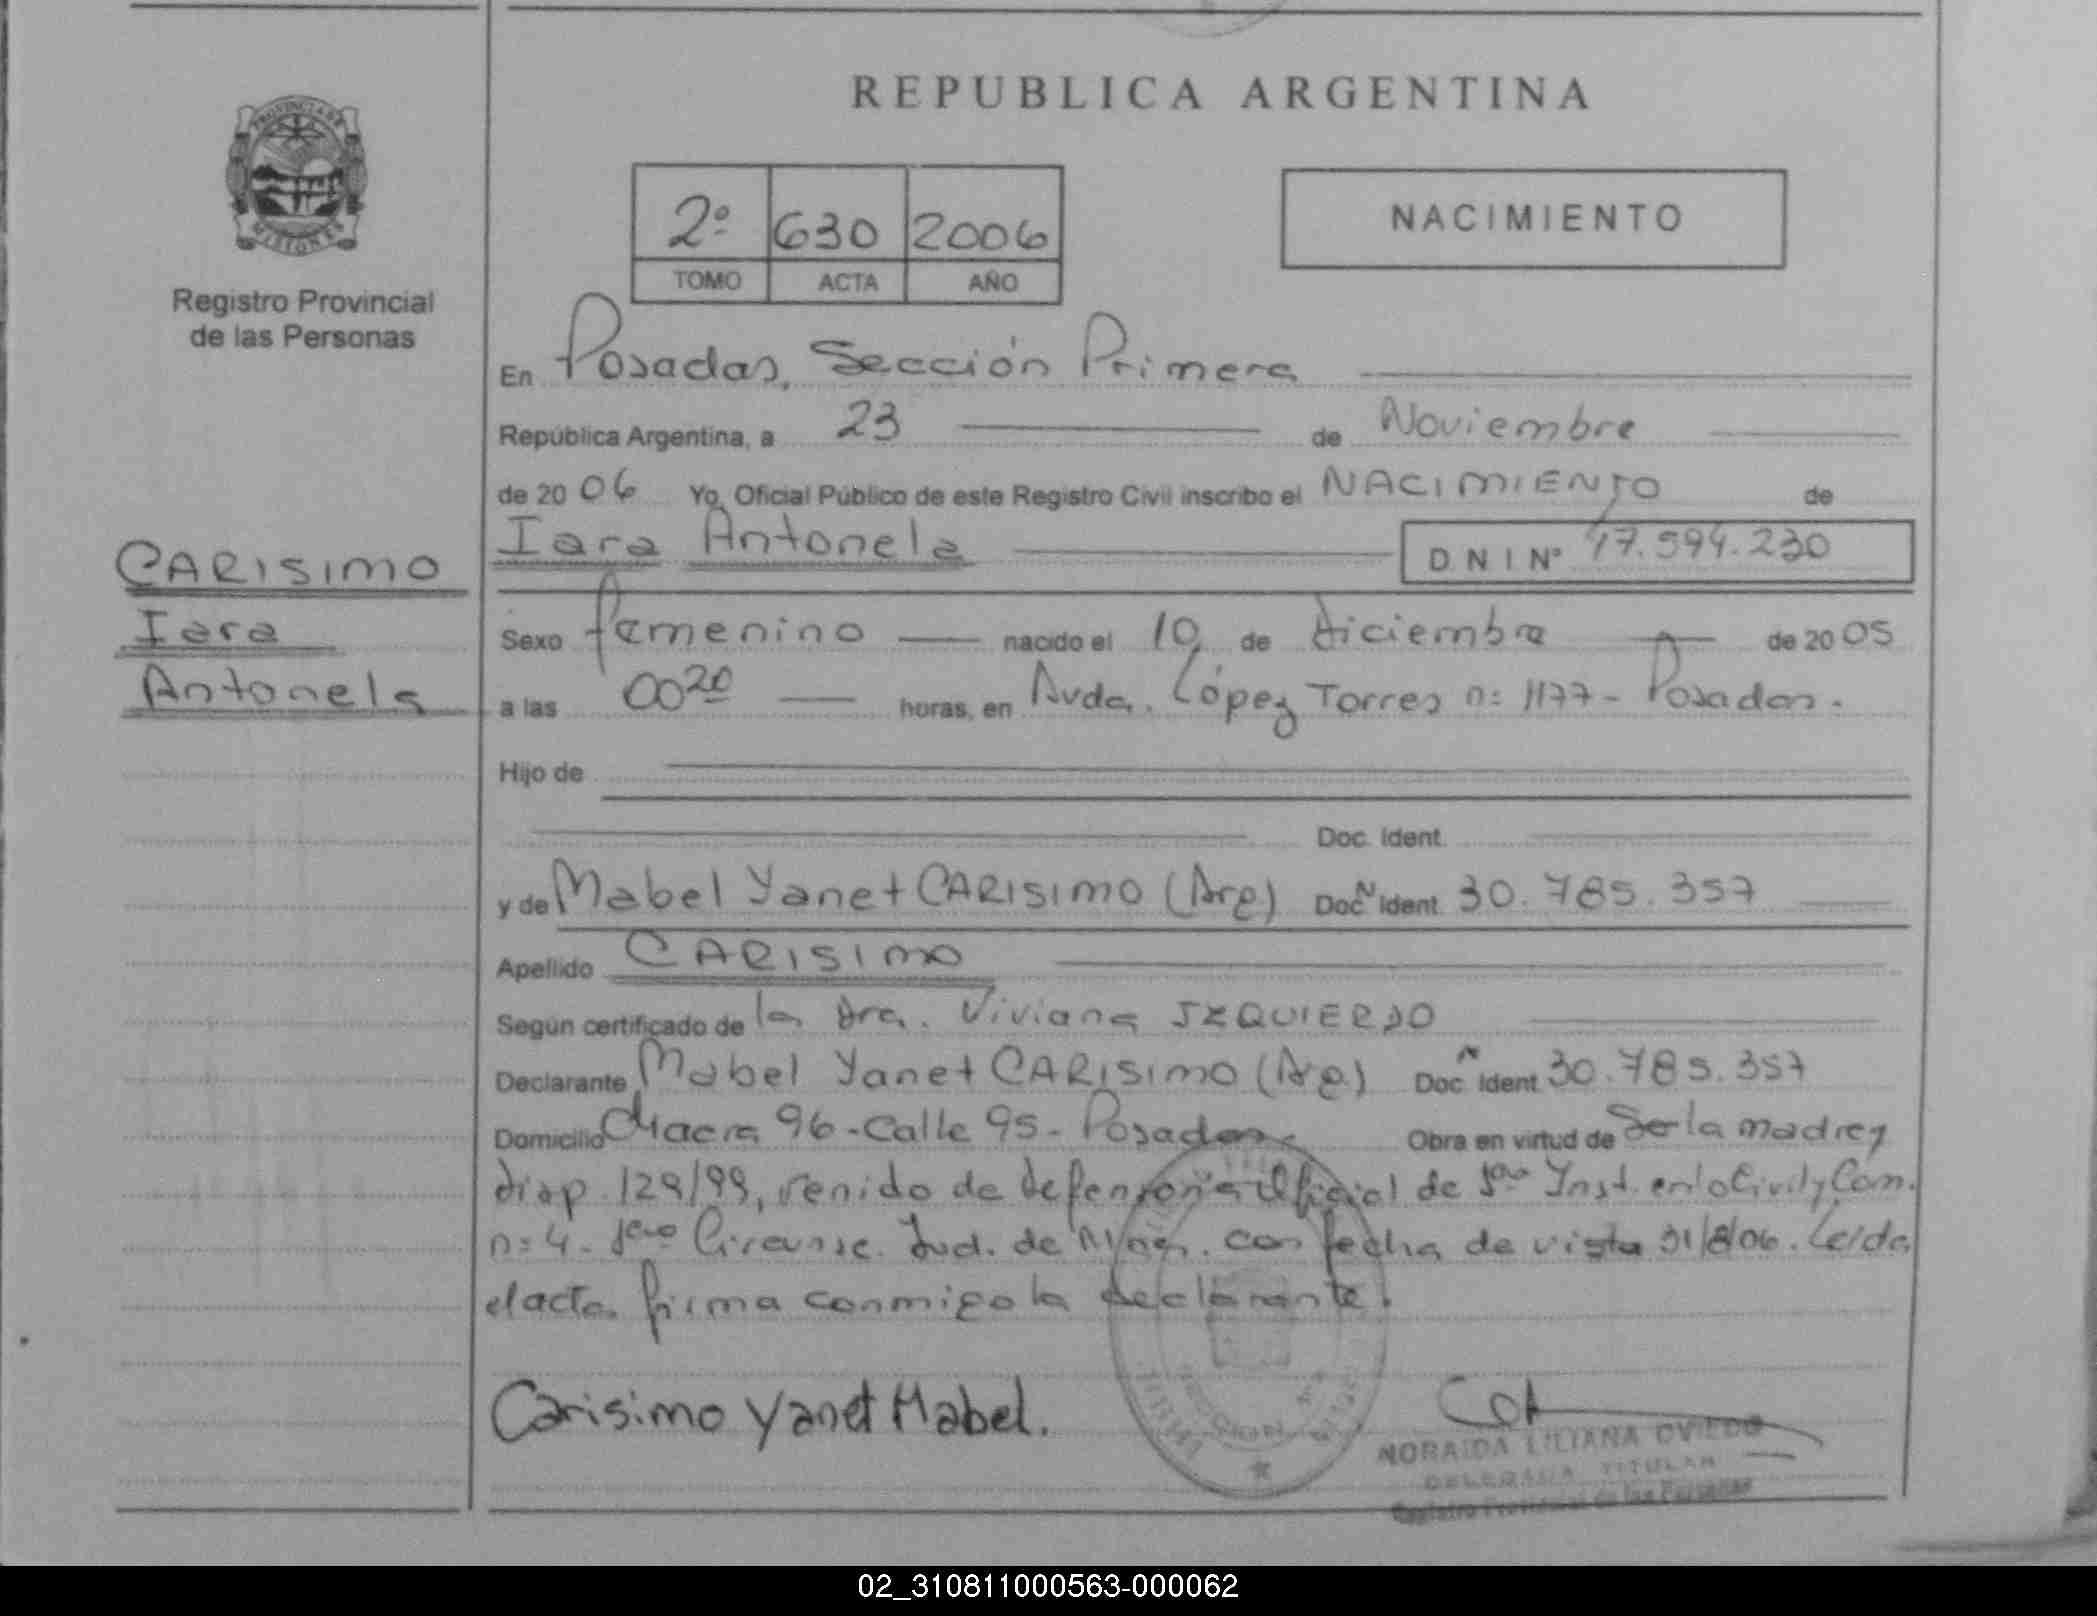 REPUBLICA ARGENTINA
PROVINCIA DE
MISIONES
Registro Provincial
de las Personas
2º 630 2006
TOMO ACTA AÑO
NACIMIENTO
En Posadas, Sección Primera
República Argentina, a 23 de Noviembre
de 20 06 Yo, Oficial Público de este Registro Civil inscribo el NACIMIENTO de
Iara Antonela
D N I Nº 47.594.230
CARISIMO
Iara
Antonela
Sexo femenino nacido el 10 de diciembre de 20 05
a las 00 20 horas, en Avda. López Torres n: 1177 - Posadas.
Hijo de
Doc. Ident.
y de Mabel Yanet CARISIMO (Arg) Doc N Ident. 30.785.357
Apellido CARISIMO
Según certificado de la dra. Viviana IZQUIERDO
Declarante Mabel Yanet CARISIMO (Arg) Doc N Ident 30.785.357
Domicilio Chacra 96 - Calle 95 - Posadas Obra en virtud de Ser la madre y
disp. 129/99, venido de defensoría Oficial de 1era Inst. en lo Civil y Com.
n: 4 - 1era Circunsc. Jud. de Mnes. con fecha de vista 31/8/06. Leída
el acta firma conmigo la declarante.
Carisimo Yanet Mabel.
NORAIDA LILIANA OVIEDO
DELEGADA TITULAR
Registro Provincial de las Personas
02_310811000563-000062